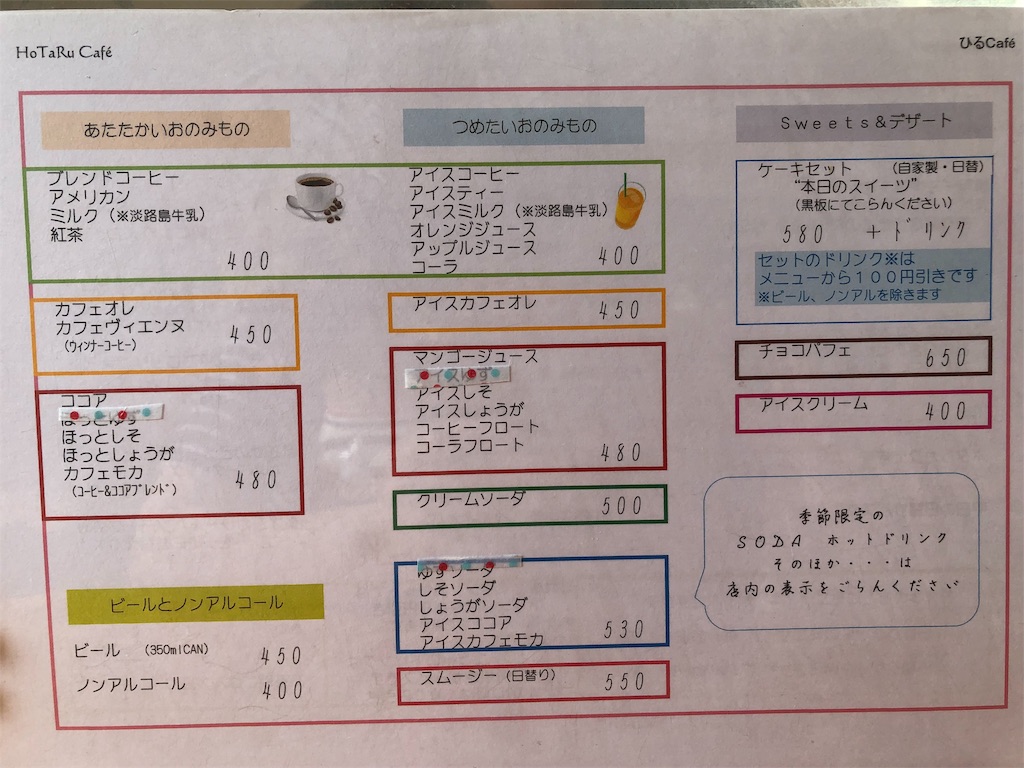 HoTaRu Café
ひるCafé
あたたかいおのみもの
ブレンドコーヒー
アメリカン
ミルク（※淡路島牛乳）
紅茶
400
カフェオレ
カフェヴィエンヌ
（ウィンナーコーヒー）
450
ココア
ほっとゆず
ほっとしそ
ほっとしょうが
カフェモカ
（コーヒー&ココアブレンド）
480
ビールとノンアルコール
ビール （350mlCAN） 450
ノンアルコール 400
つめたいおのみもの
アイスコーヒー
アイスティー
アイスミルク（※淡路島牛乳）
オレンジジュース
アップルジュース
コーラ
400
アイスカフェオレ 450
マンゴージュース
アイスゆず
アイスしそ
アイスしょうが
コーヒーフロート
コーラフロート
480
クリームソーダ 500
ゆずソーダ
しそソーダ
しょうがソーダ
アイスココア
アイスカフェモカ
530
スムージー（日替り） 550
Sweets&デザート
ケーキセット （自家製・日替）
“本日のスイーツ”
（黒板にてごらんください）
580 ＋ドリンク
セットのドリンク※は
メニューから１００円引きです
※ビール、ノンアルを除きます
チョコパフェ 650
アイスクリーム 400
季節限定の
SODA ホットドリンク
そのほか・・・は
店内の表示をごらんください